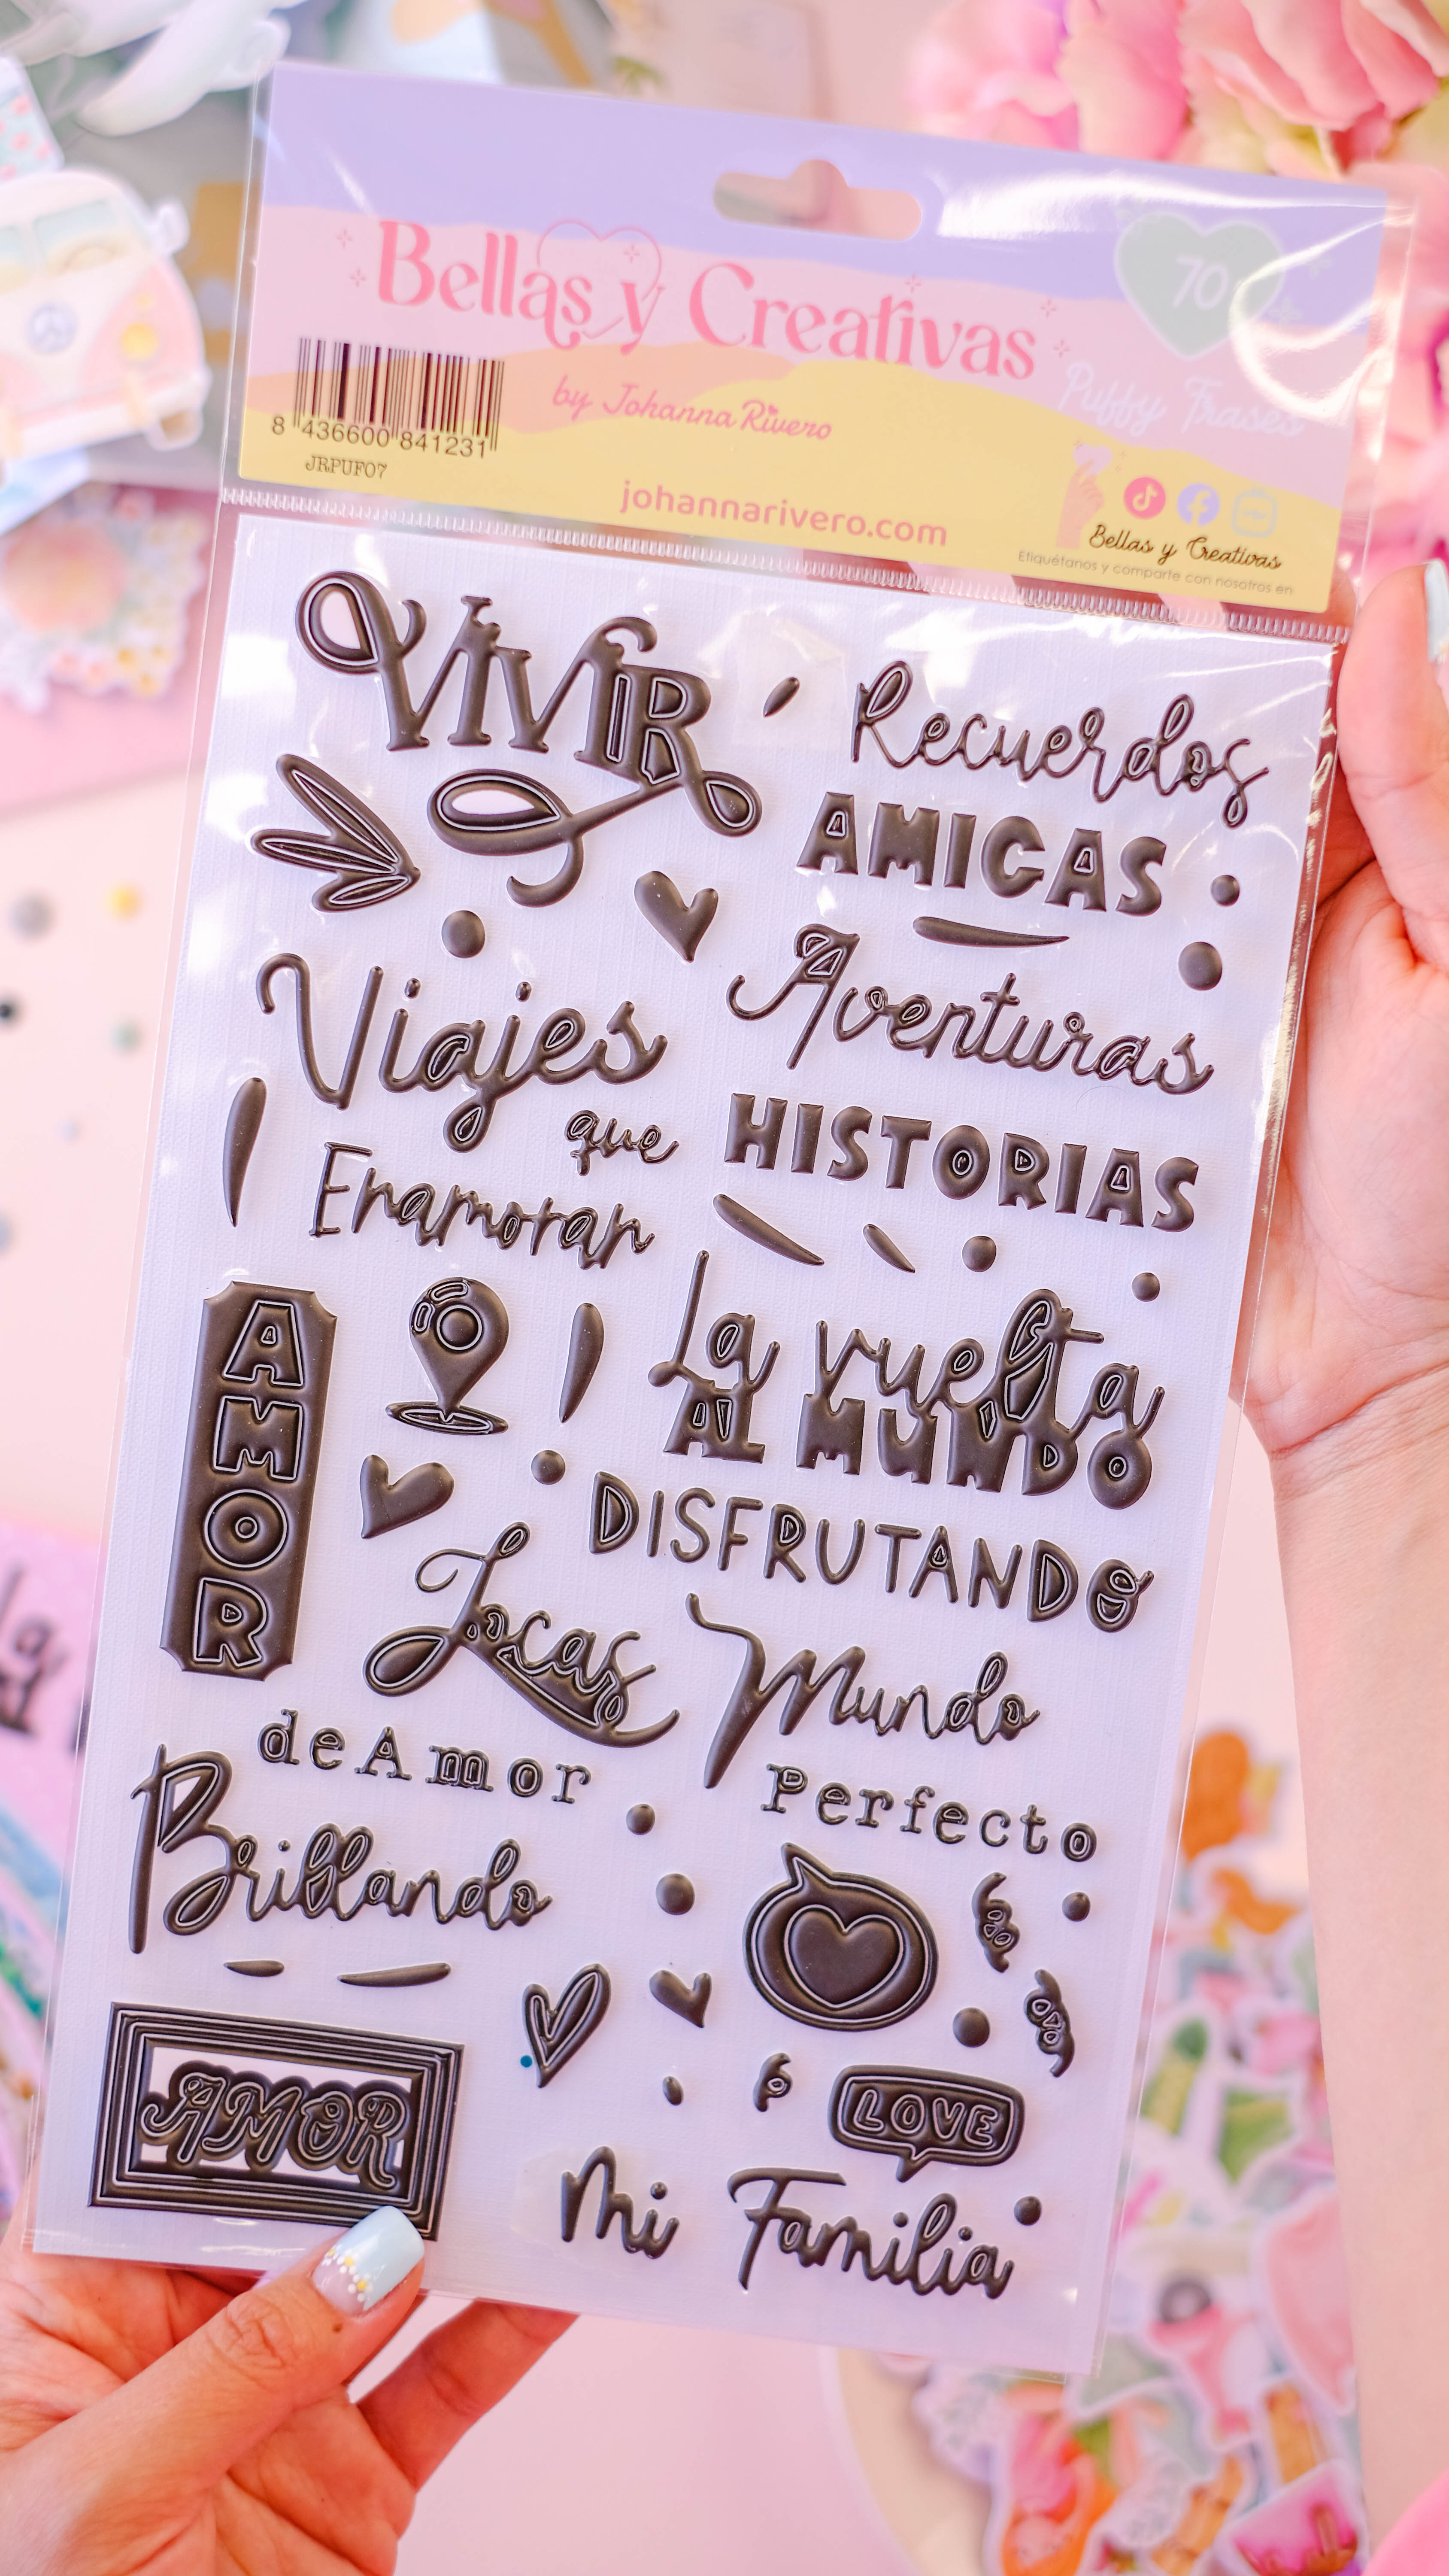 70
Bellas y Creativas
by Johanna Rivero
Puffy Frases
8 436600 841231
JRPUF07
johannarivero.com
Bellas y Creativas
Etiquétanos y comparte con nosotros en
VIVIR
Recuerdos
AMIGAS
Aventuras
Viajes
que
Enamoran
HISTORIAS
AMOR
La vuelta
AL MUNDO
DISFRUTANDO
Locas
de Amor
Mundo
Perfecto
Brillando
AMOR
LOVE
Mi Familia